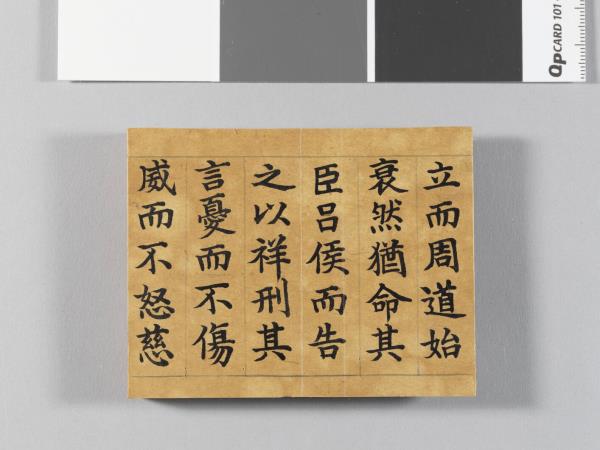 立而周道始
衰然猶命其
臣呂侯而告
之以祥刑其
言憂而不傷
威而不怒慈
QPCARD 101